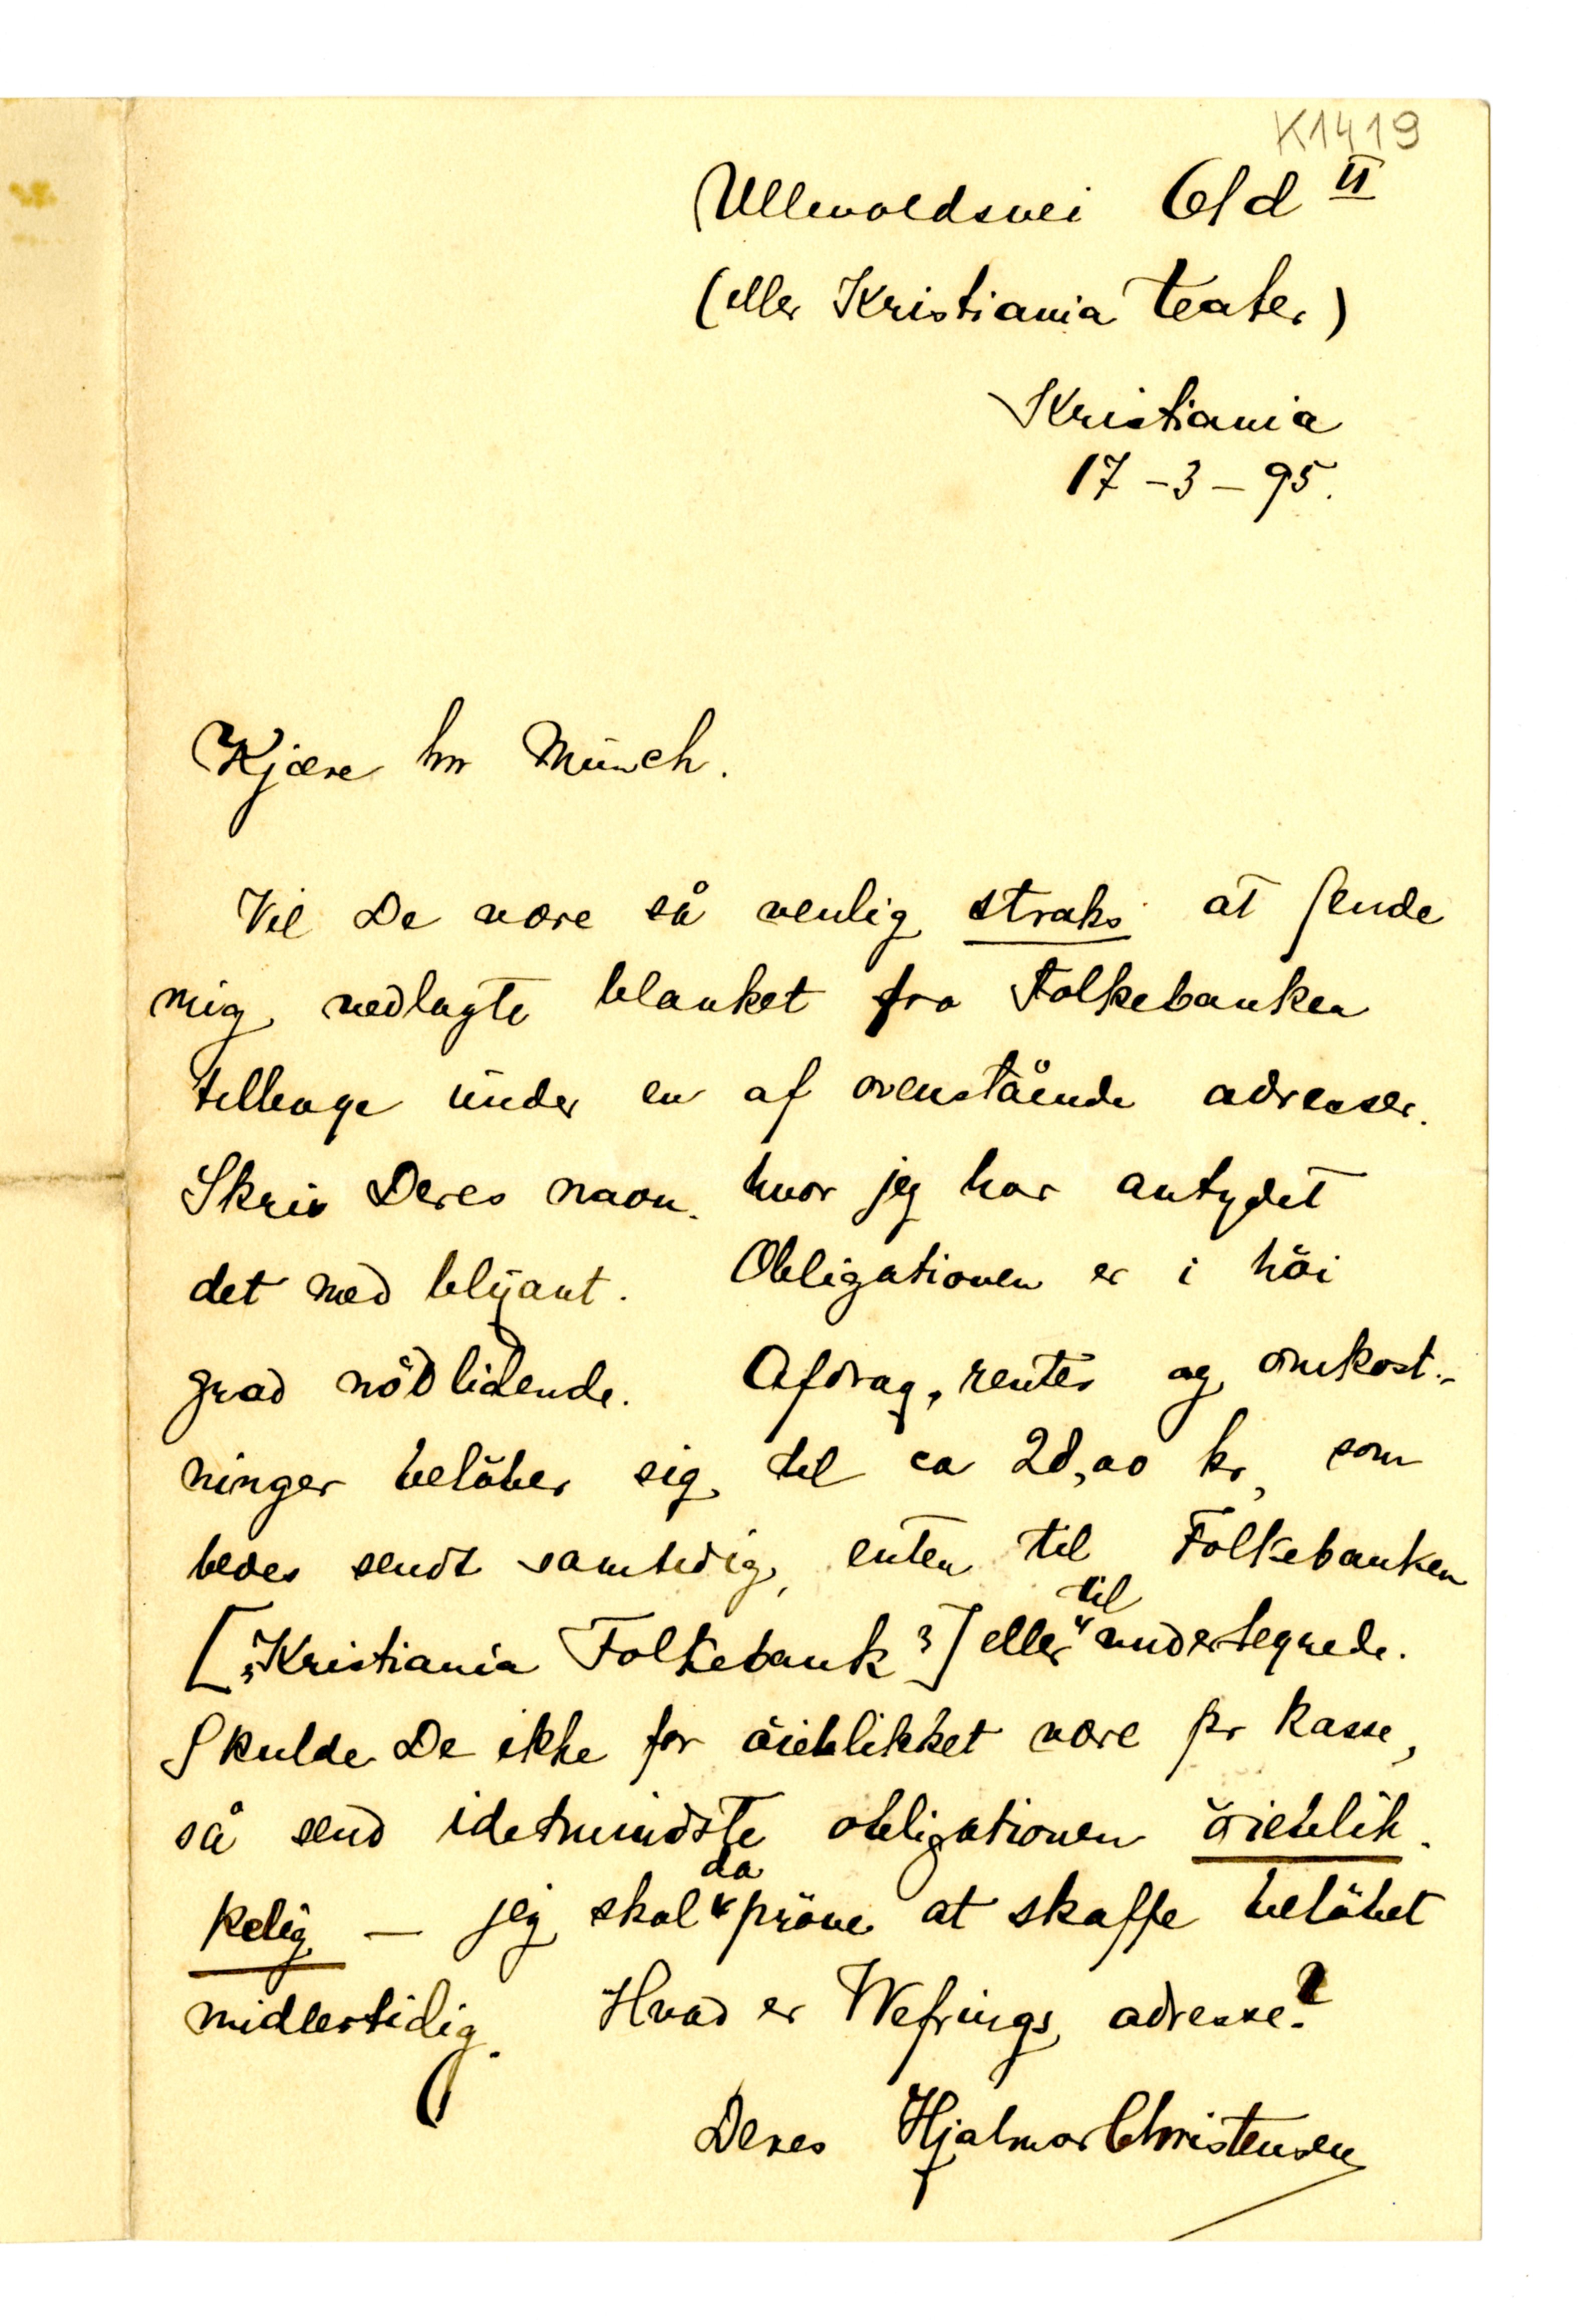 K1419
Ullevoldsvei 61 d II
(eller Kristiania teater)
Kristiania
17-3-95.
Kjære hr Münch.
Vil De være så venlig straks at sende
mig vedlagte blanket fra Folkebanken
tilbage under en af ovenstående adresser.
Skriv Deres navn hvor jeg har antydet
det med blyant. Obligationen er i höi
grad nödlidende. Afdrag, renter og omkost-
ninger belöber sig til ca 28,00 kr, som
bedes sendt samtidig, enten til Folkebanken
[„Kristiania Folkebank"] eller til undertegnede.
Skulde De ikke for öieblikket være pr kasse,
så send idetmindste obligationen öieblik-
kelig — jeg skal da pröve at skaffe belöbet
midlertidig. Hvad er Wefrings adresse?
Deres Hjalmar Christensen